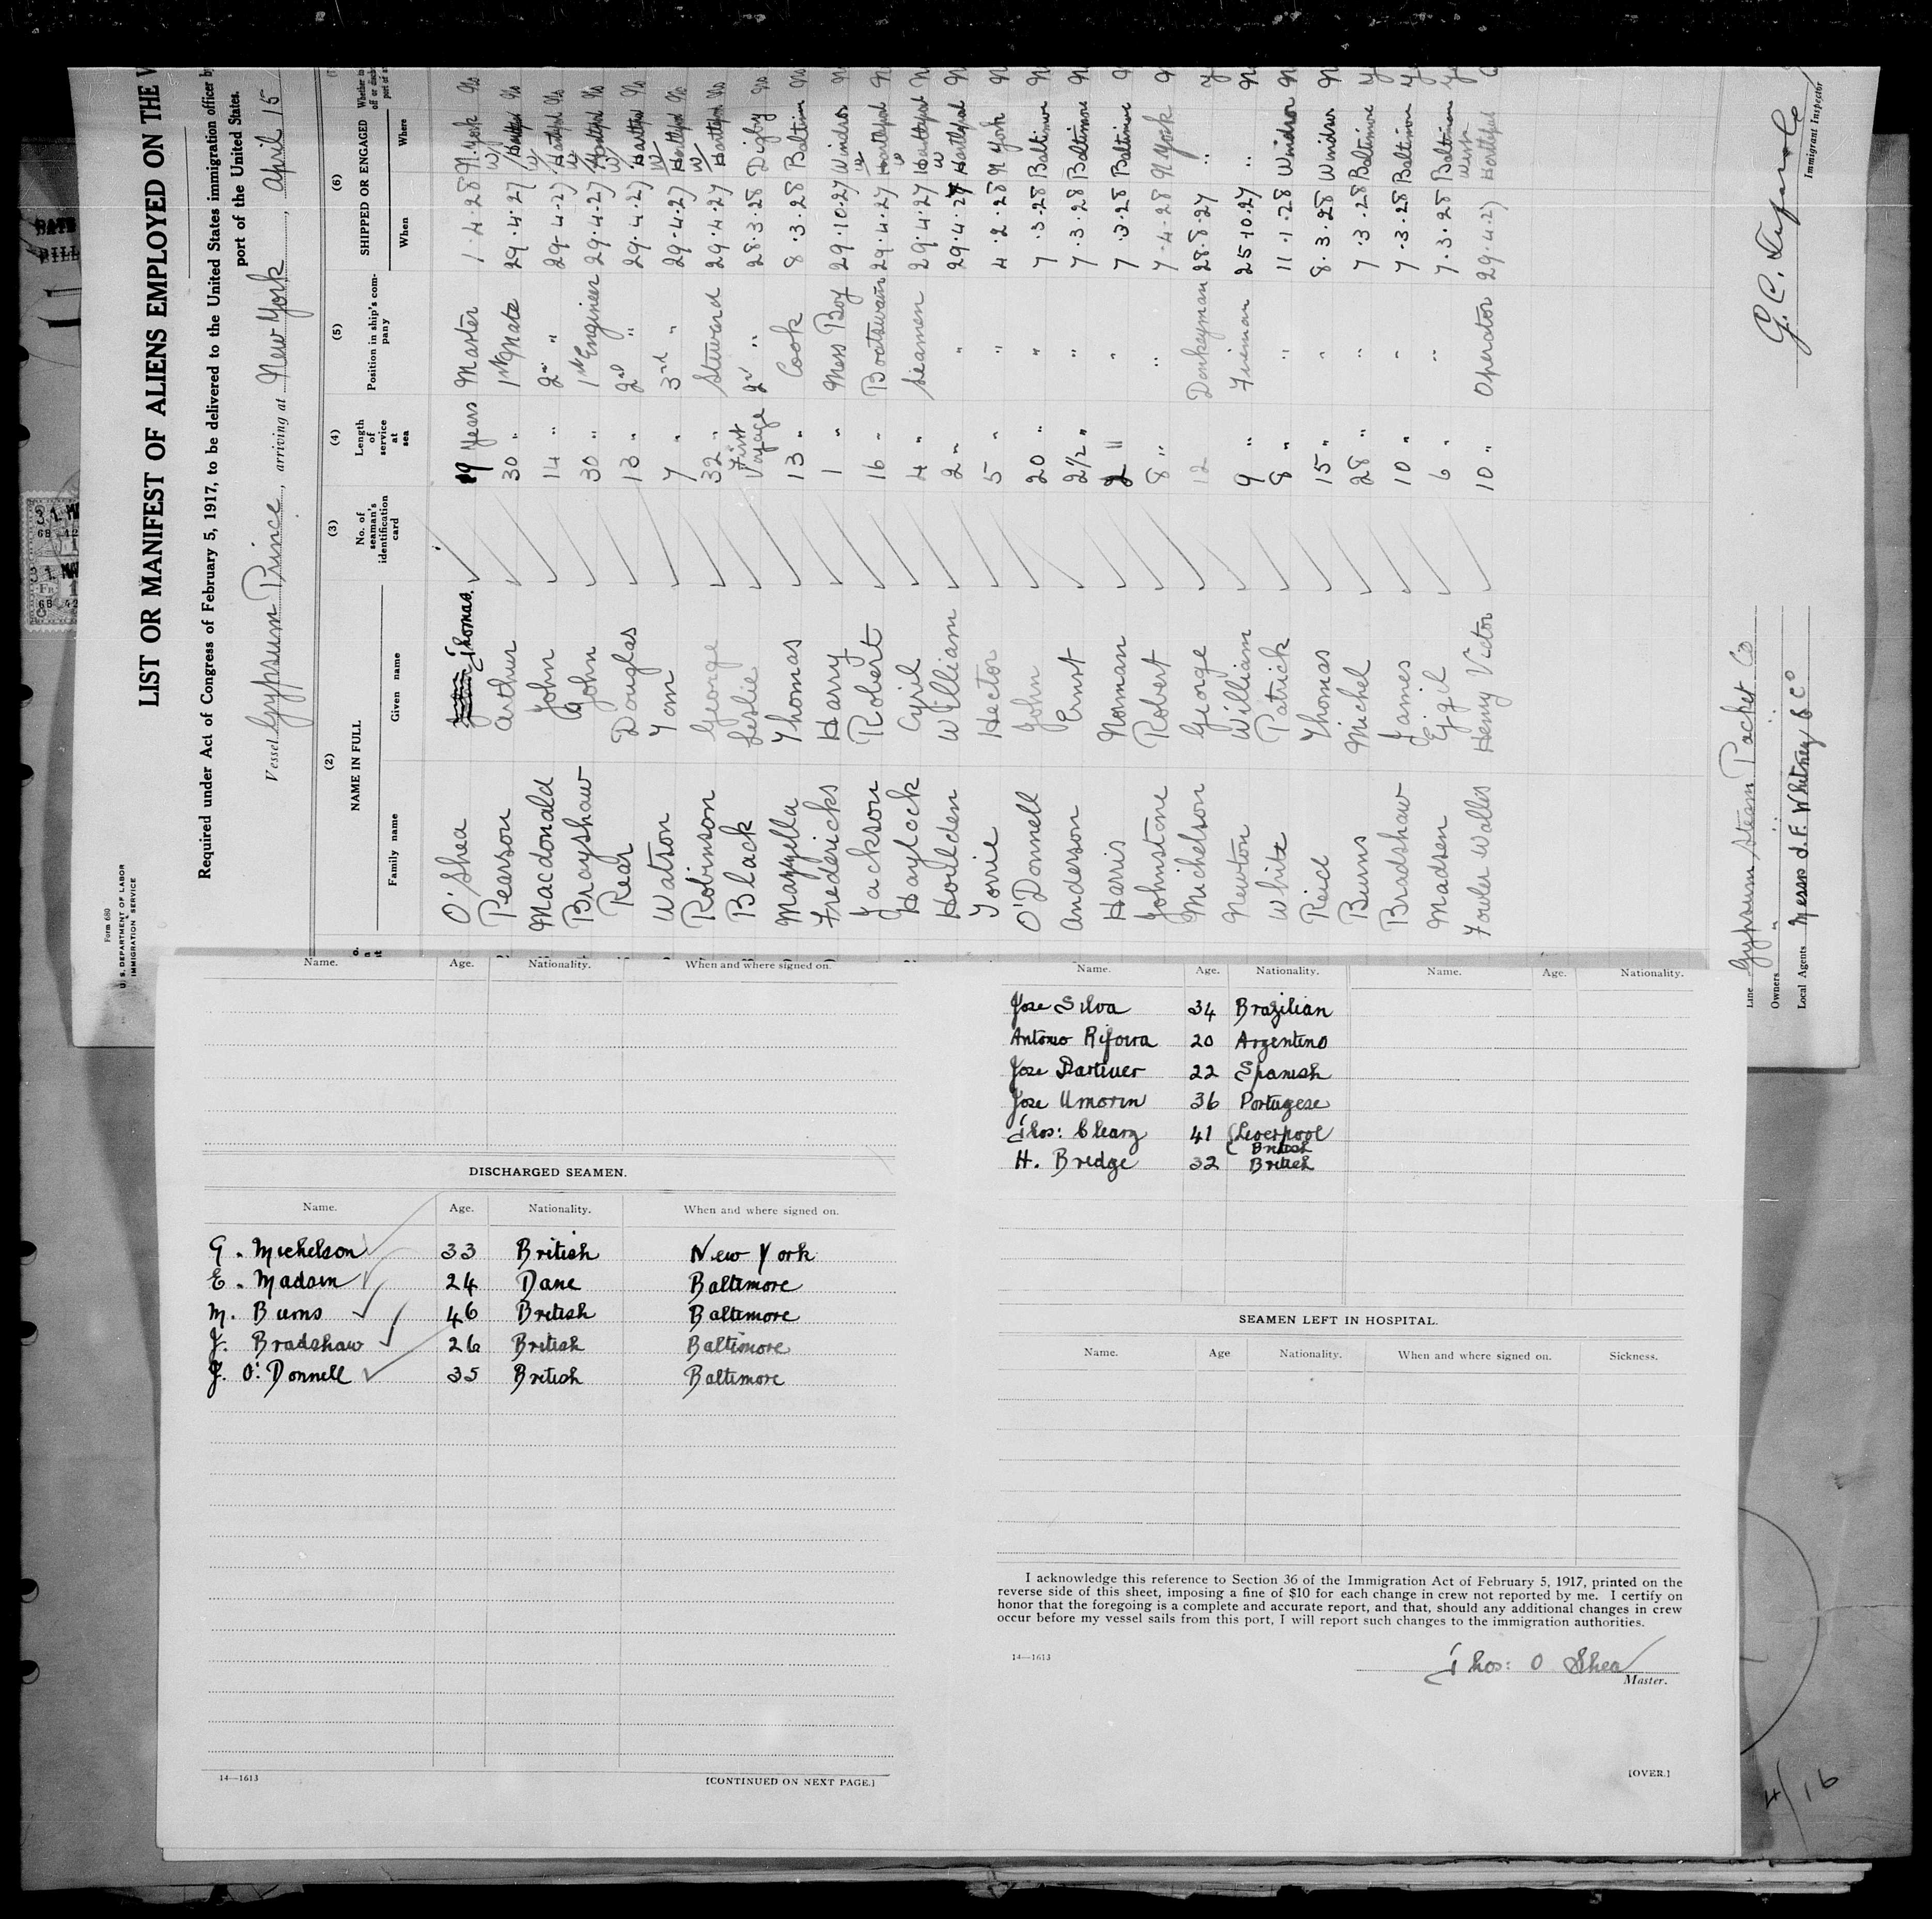 Form 680
U. S. DEPARTMENT OF LABOR
IMMIGRATION SERVICE
LIST OR MANIFEST OF ALIENS EMPLOYED ON THE
Required under Act of Congress of February 5, 1917, to be delivered to the United States immigration officer by
port of the United States.
Vessel Gypsum Prince, arriving at New York, April 15
(2) (3) (4) (5) (6)
NAME IN FULL No. of seaman's identification card Length of service at sea Position in ship's company SHIPPED OR ENGAGED
Family name Given name When Where
O'Shea Thomas. 19 Years Master 1.4.28 N. York No
Pearson Arthur 30 " 1st Mate 29.4.27 W Hartlepool No
Macdonald John 14 " 2nd " 29.4.27 W Hartlepool No
Brayshaw John 30 " 1st Engineer 29.4.27 W Hartlepool No
Read Douglas 13 " 2nd " 29.4.27 W Hartlepool No
Watson Tom 7 " 3rd " 29.4.27 W Hartlepool No
Robinson George 32 " Steward 29.4.27 W Hartlepool No
Black Leslie First Voyage 2nd " 28.3.28 Digby No
Mazzella Thomas 13 " Cook 8.3.28 Baltimore No
Fredericks Harry 1 " Mess Boy 29.10.27 Windsor
Jackson Robert 16 " Boatswain 29.4.27 W Hartlepool
Haylock Cyril 4 " Seamen 29.4.27 W Hartlepool
Houlden William 2 " " 29.4.27 W Hartlepool
Torrie Hector 5 " " 4.2.28 N York
O'Donnell John 20 " " 7.3.28 Baltimore
Anderson Ernst 2½ " " 7.3.28 Baltimore
Harris Norman 2 " " 7.3.28 Baltimore
Johnstone Robert 8 " " 7.4.28 N York
Michelson George 12 Donkeyman 28.8.27 "
Newton William 9 " Fireman 25.10.27 "
White Patrick 8 " " 11.1.28 Windsor
Reid Thomas 15 " " 8.3.28 Windsor
Burns Michel 28 " " 7.3.28 Baltimore
Bradshaw James 10 " " 7.3.28 Baltimore
Madsen Egil 6 " " 7.3.28 Baltimore
Fowler Wallis Henry Victor 10 " Operator 29.4.27 West Hartlepool
Immigrant Inspector
Line Gypsum Steam Packet Co
Owners " " "
Local Agents Messrs J. F. Whitney & Co
Name. Age. Nationality. When and where signed on.
DISCHARGED SEAMEN.
Name. Age. Nationality. When and where signed on.
G. Michelson 33 British New York
E. Madsen 24 Dane Baltimore
M. Burns 46 British Baltimore
J. Bradshaw 26 British Baltimore
J. O'Donnell 35 British Baltimore
14—1613 [CONTINUED ON NEXT PAGE.]
Name. Age. Nationality. Name. Age. Nationality.
Jose Silva 34 Brazilian
Antonio 20 Argentino
Jose 22 Spanish
Jose Umorin 36 Portugese
Thos: Cleary 41 (Liverpool
British
H. Bridge 32 British
SEAMEN LEFT IN HOSPITAL.
Name. Age Nationality. When and where signed on. Sickness.
I acknowledge this reference to Section 36 of the Immigration Act of February 5, 1917, printed on the
reverse side of this sheet, imposing a fine of $10 for each change in crew not reported by me. I certify on
honor that the foregoing is a complete and accurate report, and that, should any additional changes in crew
occur before my vessel sails from this port, I will report such changes to the immigration authorities.
14—1613
Thos: O Shea
Master.
[OVER.]
4/16